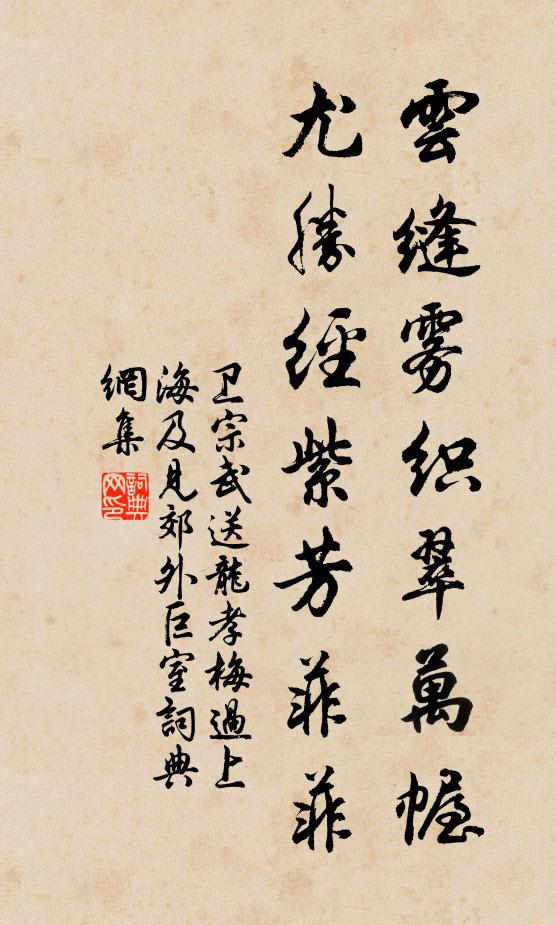 雲縫雾织翠萬幄
尤勝經紫芳菲菲
卫宗武送龍孝梅過上
海及見郊外巨室詞典
網集
詞典網印